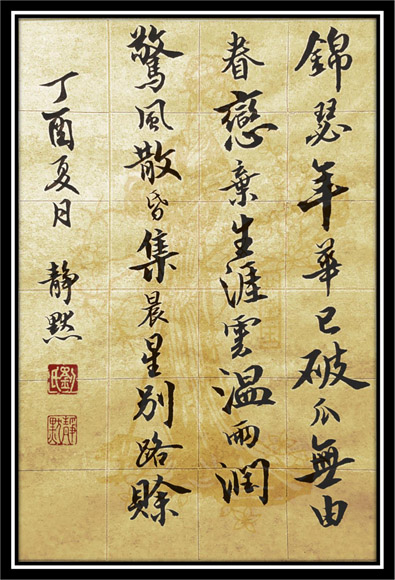 錦瑟年華已破瓜無由
眷戀棄生涯雲溫雨潤
驚風散昏集晨星別路賒
丁酉夏月 靜默
劉氏
靜默